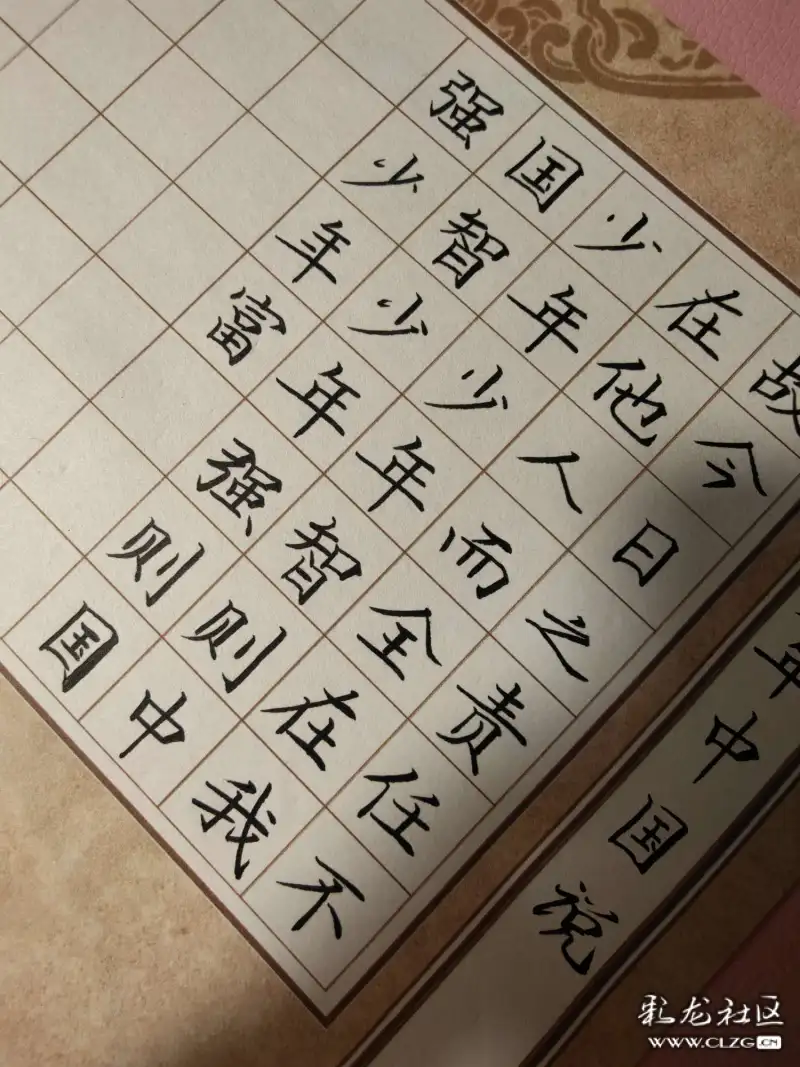 年中国说
故今日之责任不
在他人而全在我
少年少年智则中
国智少年强则国
强少年富
彩龙社区
WWW.CLZG.CN